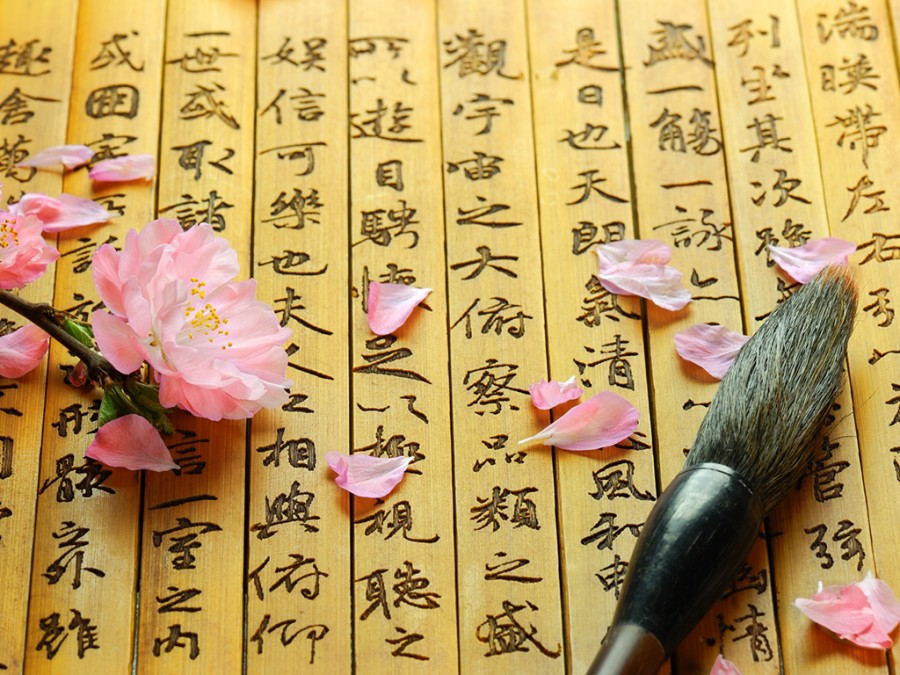 湍暎帶左右引
列坐其次雖管弦
盛一觴一詠幽情
是日也天朗氣清風和
觀宇宙之大俯察品類之盛
所以遊目騁懷足以極視聽之
娛信可樂也夫人之相與俯仰
一世或取諸言一室之內
或因寄形骸之外雖
趣舍萬